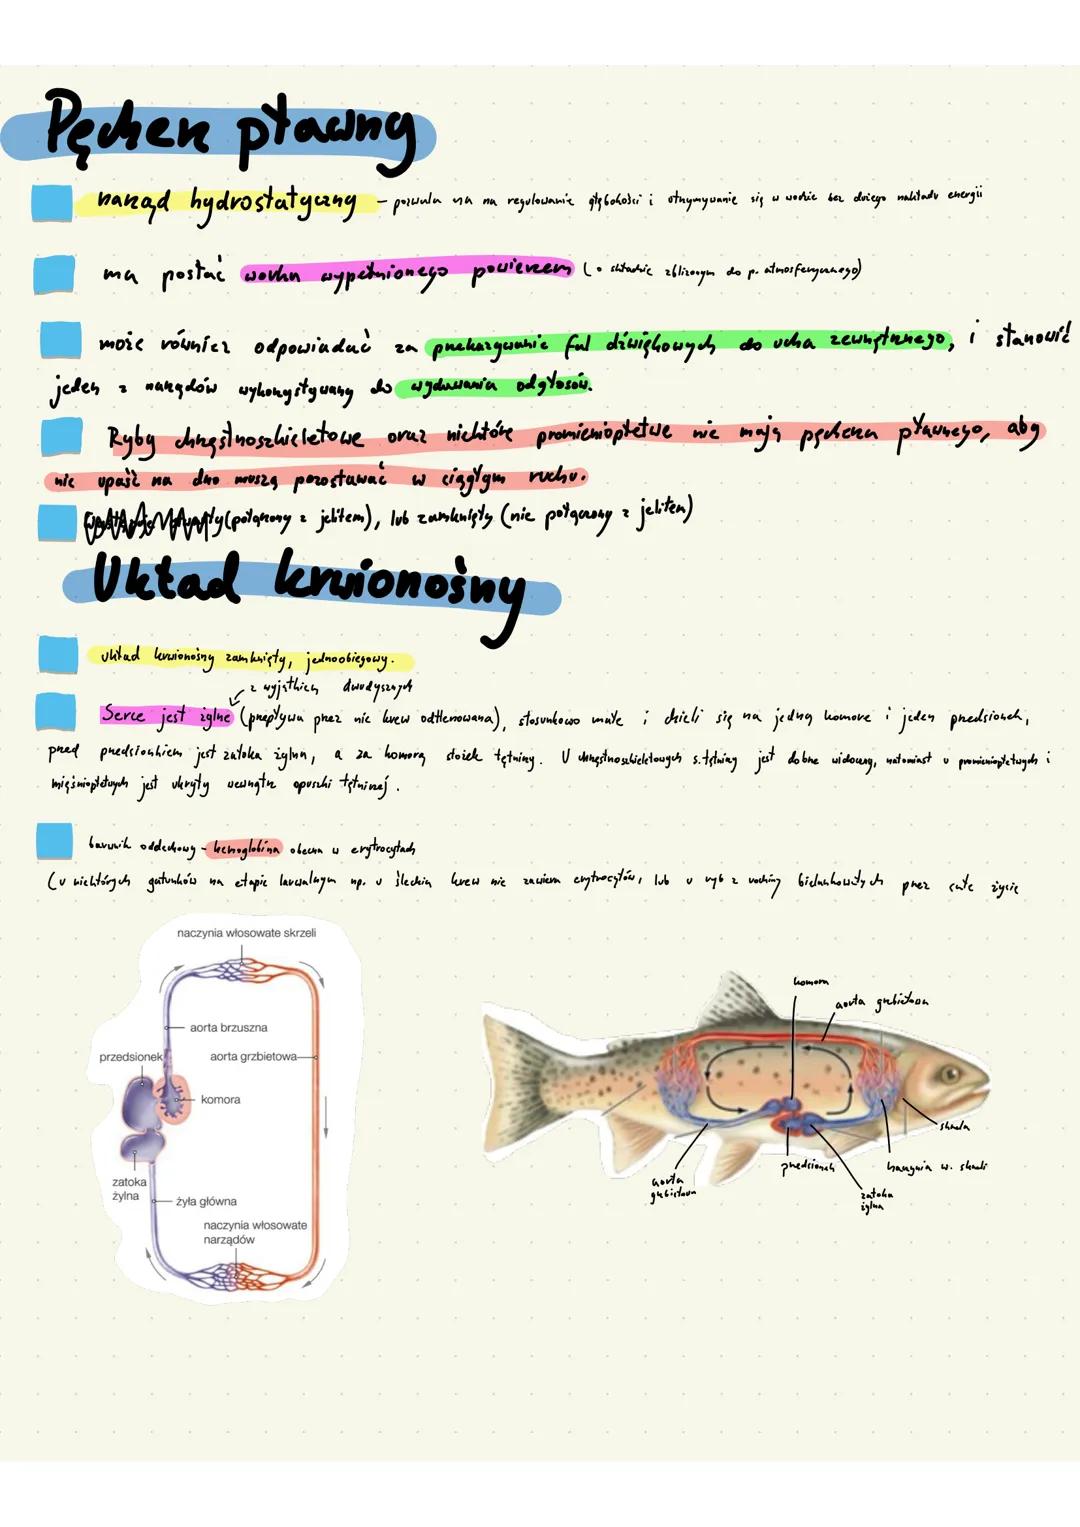 Pęcherz pławny
narząd hydrostatyczny - pozwala na na regulowanie głębokości i utrzymywanie się w wodzie bez dużego nakładu energii
ma postać worka wypełnionego powietrzem (o składzie zbliżonym do p. atmosferycznego)
może również odpowiadać za przekazywanie fal dźwiękowych do ucha zewnętrznego, i stanowić
jeden z narządów wykorzystywany do wydawania odgłosów.
Ryby chrzęstnoszkieletowe oraz niektóre promieniopłetwe nie mają pęcherza pławnego, aby
nie upaść na dno muszą pozostawać w ciągłym ruchu.
(połączony z jelitem), lub zamknięty (nie połączony z jelitem)
Układ krwionośny
układ krwionośny zamknięty, jednoobiegowy.
z wyjątkiem dwudysznych
Serce jest żylne (przepływa przez nie krew odtlenowana), stosunkowo małe i dzieli się na jedną komorę i jeden przedsionek,
przed przedsionkiem jest zatoka żylna, a za komorą stożek tętniczy. U chrzęstnoszkieletowych s.tętniczy jest dobrze widoczny, natomiast u promieniopłetwych i
mięśniopłetwych jest ukryty wewnątrz opuszki tętniczej.
barwnik oddechowy - hemoglobina obecna w erytrocytach
(u niektórych gatunków na etapie larwalnym np. u śledzia krew nie zawiera erytrocytów, lub u ryb z rodziny bielankowatych przez całe życie
naczynia włosowate skrzeli
aorta brzuszna
przedsionek
aorta grzbietowa
komora
zatoka
żylna
żyła główna
naczynia włosowate
narządów
komora
aorta grzbietowa
skrzela
przedsionek
naczynia w. skrzeli
aorta
grzbietowa
zatoka
żylna